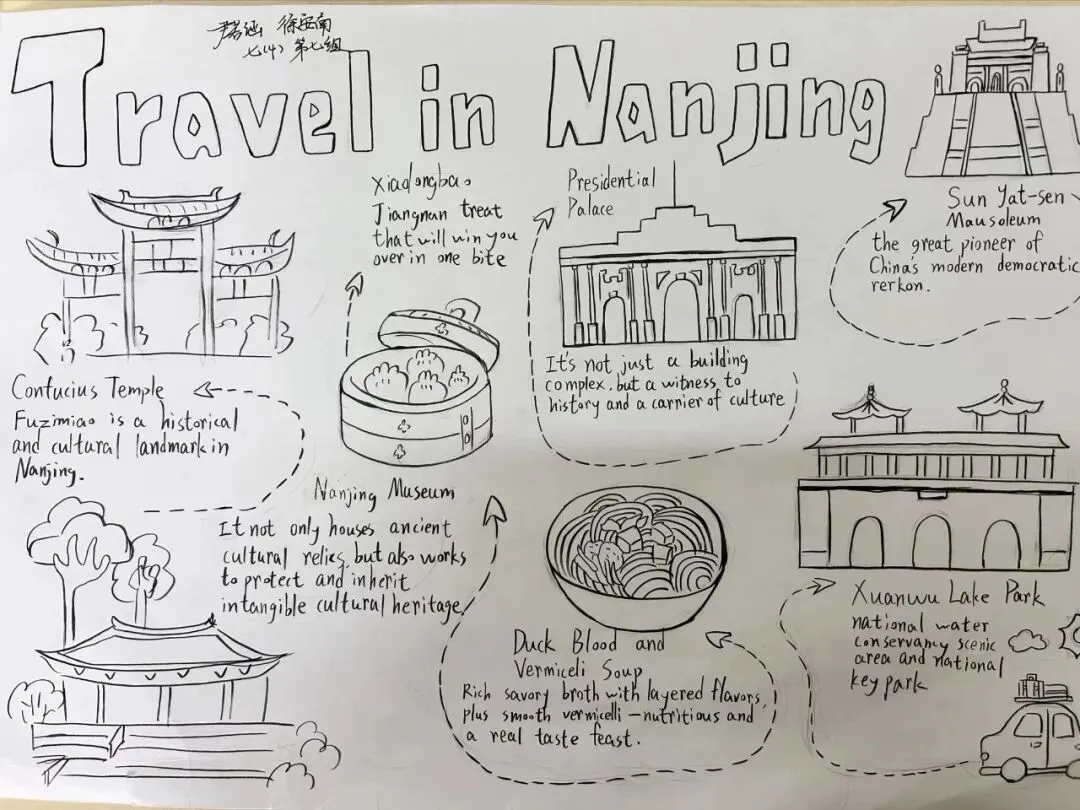 第七组
Travel in Nanjing
Xiaolongbao。
Jiangnan treat
that will win you
over in one bite
Presidential
Palace
It's not just a building
complex, but a witness to
history and a carrier of culture
Sun Yat-sen
Mausoleum
the great pioneer of
China's modern democratic
rerkon.
Confucius Temple
Fuzimiao is a historical
and cultural landmark in
Nanjing.
Nanjing Museum
It not only houses ancient
cultural relics, but also works
to protect and inherit
intangible cultural heritage.
Duck Blood and
Vermiceli Soup
Rich savory broth with layered flavors,
plus smooth vermicelli - nutritious and
a real taste feast.
Xuanwu Lake Park
national water
conservancy scenic
area and national
key park